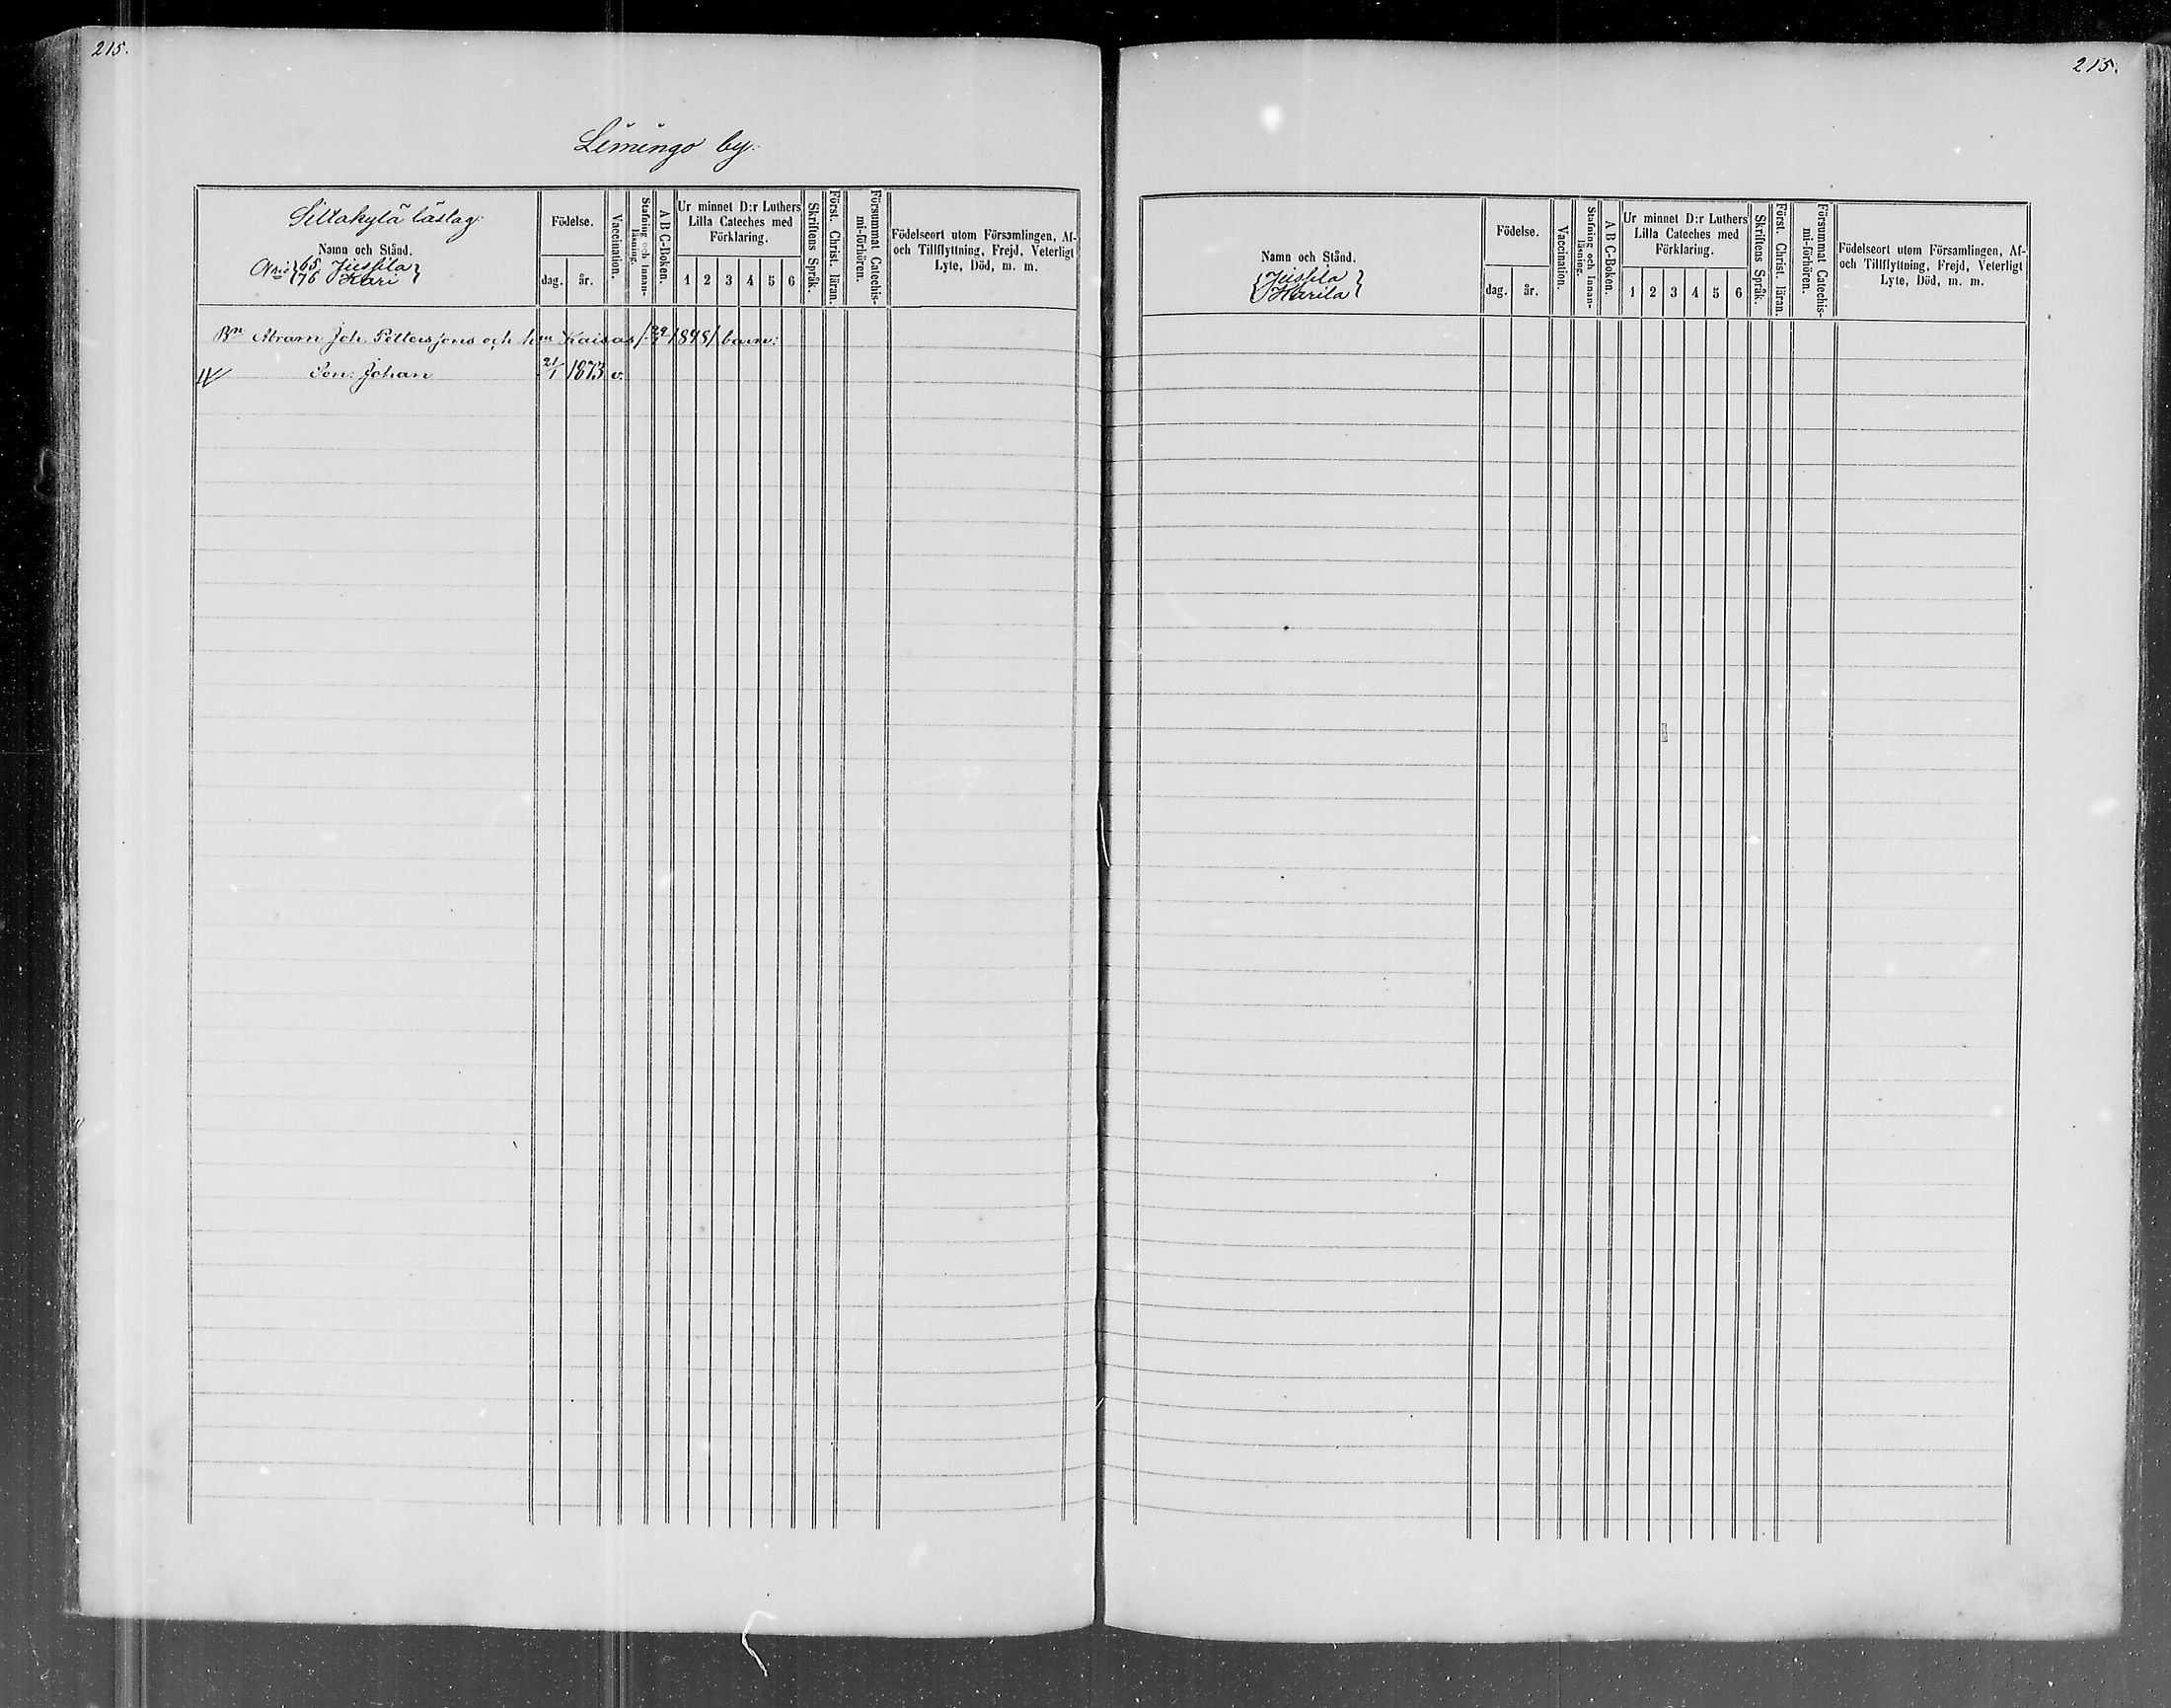 215.
Limingo by.
Siltakylä läslag.
Namn och Stånd.
N:ris {65 Jussila}
{76 Kari}
Födelse.
dag. år.
Vaccination.
Stafning och Innanläsning.
A B C-Boken.
Ur minnet D:r Luthers
Lilla Cateches med
Förklaring.
1 2 3 4 5 6
Skriftens Språk.
Först. Christ. läran.
Försummat Catechismi-förhören.
Födelseort utom Församlingen, Af-
och Tillflyttning, Frejd, Veterligt
Lyte, Död, m. m.
Bn Abram Joh. Pettersjons och hn Kaisas /29/7 1848/ barn:
Son: Johan 21/1 1873 v.
215.
Namn och Stånd.
{Jussila}
{Karila}
Födelse.
dag. år.
Vaccination.
Stafning och Innanläsning.
A B C-Boken.
Ur minnet D:r Luthers
Lilla Cateches med
Förklaring.
1 2 3 4 5 6
Skriftens Språk.
Först. Christ. läran.
Försummat Catechismi-förhören.
Födelseort utom Församlingen, Af-
och Tillflyttning, Frejd, Veterligt
Lyte, Död, m. m.